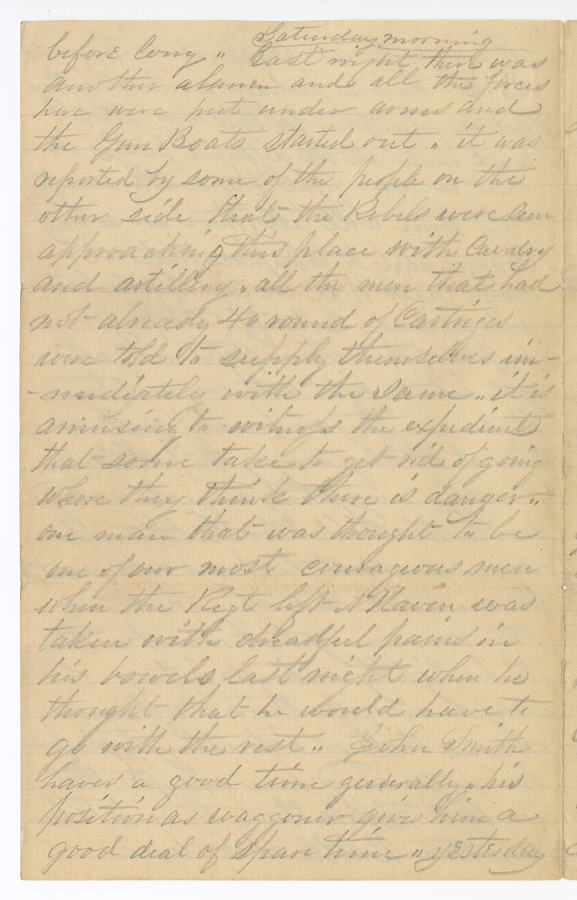 Saturday morning
before long " Last night there was
another alarm and all the forces
here were put under arms and
the Gun Boats started out " it was
reported by some of the people on the
other side that the Rebels were seen
approaching this place with Cavalry
and artillery " all the men that had
not already 40 round of Cartriges
were told to supply themselves im-
-mediately with the same " it is
amusing to witness the expedients
that some take to get rid of going
where they think there is danger "
one man that was thought to be
one of our most courageous men
when the Regt left N Haven was
taken with dreadful pains in
his bowels last night when he
thought that he would have to
go with the rest " John Smith
haves a good time generally " his
position as waggoner give him a
good deal of spare time " yesterday